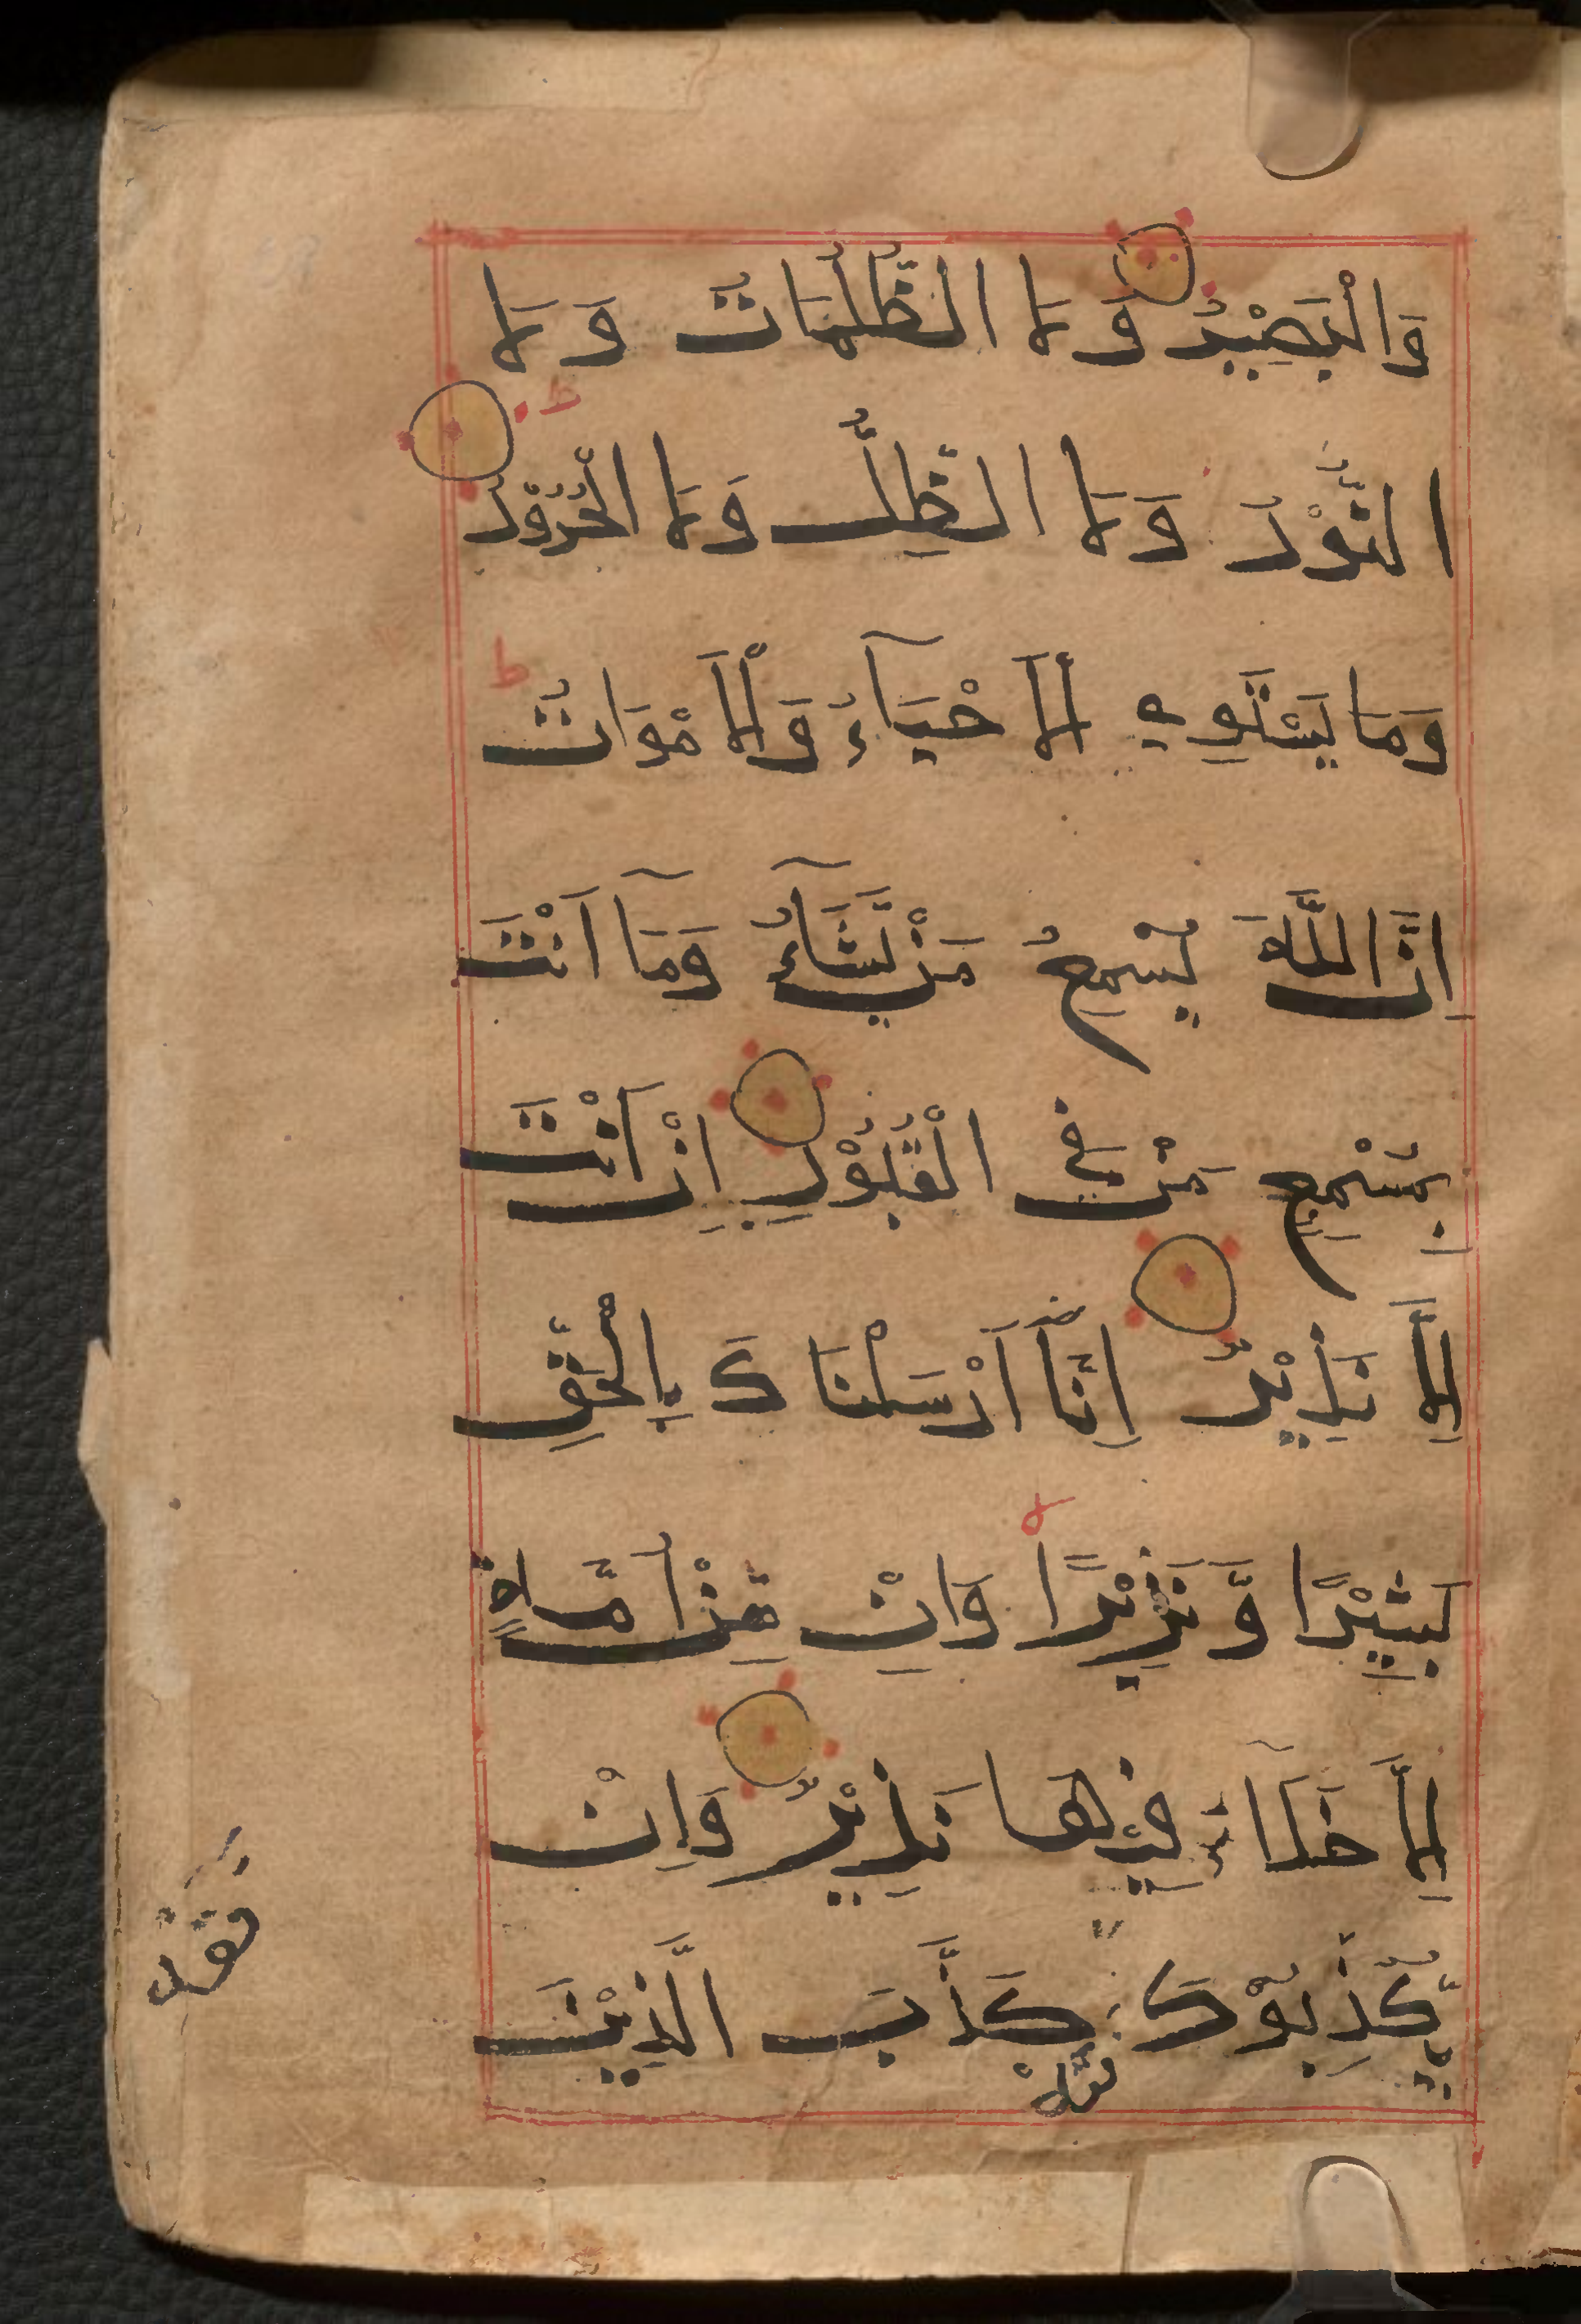 وَالْبَصِيْرُ وَلَا الظُّلُمَاتُ وَلَا
النُّوْرُ وَلَا الظِّلُّ وَلَا الْحَرُوْرُ ط
وَمَا يَسْتَوِي الْاَحْيَآءُ وَالْاَمْوَاتُ ط
اِنَّ اللَّهَ يُسْمِعُ مَنْ يَّشَآءُ وَمَآ اَنْتَ
بِمُسْمِعٍ مَنْ فِي الْقُبُوْرِ اِنْ اَنْتَ
اِلَّا نَذِيْرٌ اِنَّآ اَرْسَلْنَاكَ بِالْحَقِّ
بَشِيْرًا وَّنَذِيْرًا ط وَاِنْ مِّنْ اُمَّةٍ
اِلَّا خَلَا فِيْهَا نَذِيْرٌ وَاِنْ
يُّكَذِّبُوْكَ فَقَدْ كَذَّبَ الَّذِيْنَ
فَقَدْ